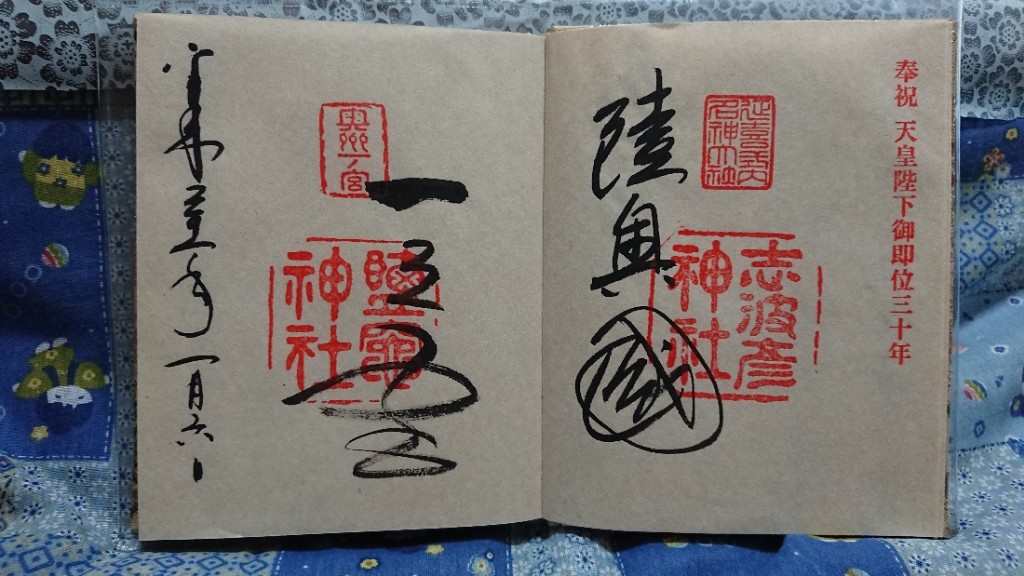 奉祝 天皇陛下御即位三十年
延喜式内
名神大社
陸奥國
志波彦
神社
奥州一宮
一之宮
鹽竈
神社
平成丗一年一月六日